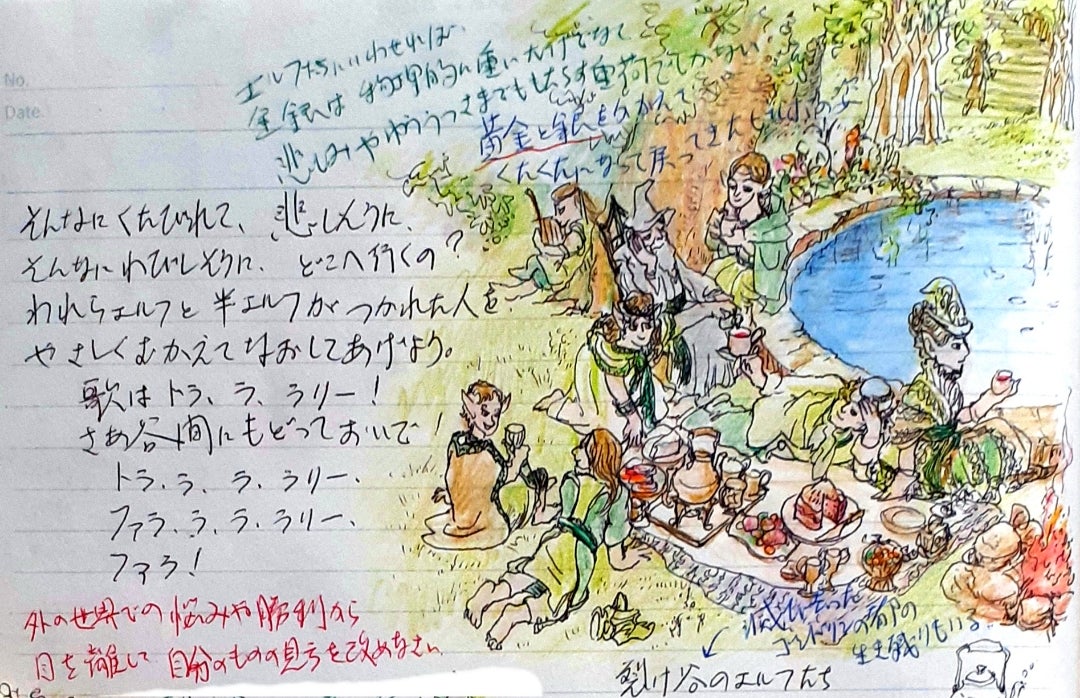 No.
Date.
エルフたちにいわせれば、
金銀は物理的に重いだけでなくて
悲しみやゆううつさまでもたらす重荷でしかない
黄金と銀をかかえて
くたくたになって戻ってきたビルボの姿
そんなにくたびれて、悲しそうに、
そんなにわびしそうに、どこへ行くの?
われらエルフと半エルフがつかれた人を
やさしくむかえてなおしてあげよう。
歌はトラ、ラ、ラリー!
さあ谷間にもどっておいで!
トラ、ラ、ラ、ラリー、
ファラ、ラ、ラ、ラリー、
ファラ!
外の世界での悩みや勝利から
目を離して自分のものの見方を改めなさい
滅び去った
ゴンドリンの都の
生き残りもいる
裂け谷のエルフたち